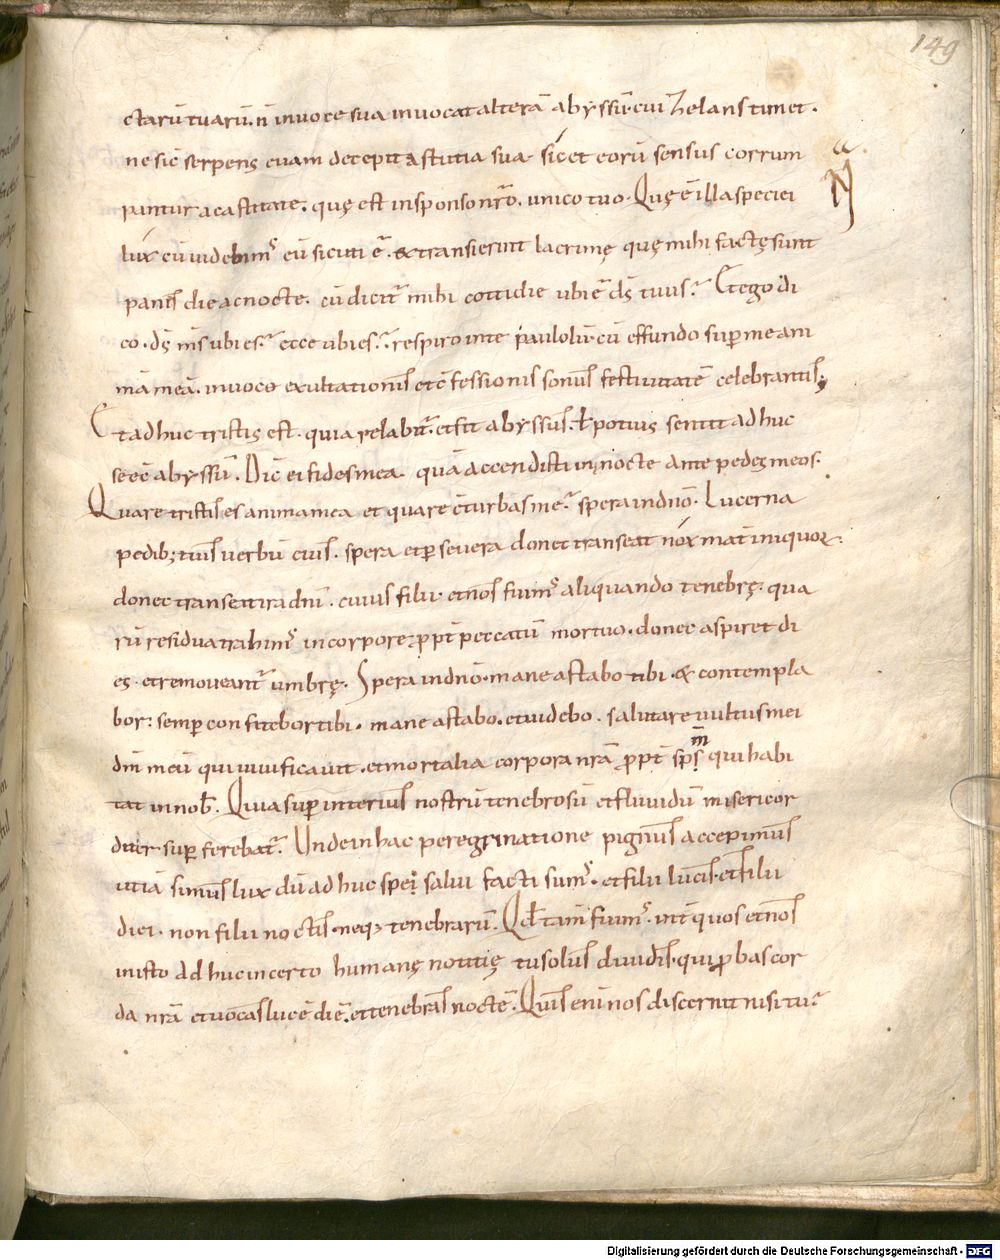 149
ctarū tuarū. n̄ in voce sua invocat alterā abyssū. cui zelans timet.
ne sic̄ serpens euam decepit astutia sua. síc et eorū sensus corrum
puntur a castitate. quę est in sponso nr̄o. unico tuo. Quę ē illa speciei
lux cū videbim᷒ eū sicuti ē. & transierint lacrimę quę mihi factę sunt
panis die ac nocte. cū dicit᷒ mihi cottidie ubi ē ds̄ tuus? Et ego di
co. ds̄ ms̄ ubi es? ecce ubi es? respiro in te paululū. cū effundo sup̄ me ani
mā meā. in voce exultationis et cōfessionis sonus festivitatē celebrantis;
Et adhuc tristis est. quia relabit᷒. et fit abyssus. ł potius sentit adhuc
se eē abyssū. Dic̄ ei fides mea. quā accendisti in nocte ante pedes meos.
Quare tristis es anima mea et quare cōturbas me? spera in dn̄o. Lucerna
pedib; tuis verbū eius. spera et p̄severa donec transeat nóx mat̄ iniquoꝝ.
donec transeat ira dn̄i. cuius filii. et nos fuim᷒ aliquando tenebrę. qua
rū residua trahim᷒ in corpore. ꝓpt̄ peccatū mortuo. donec aspiret di
es. et removeant᷒ umbrę. Spera in dn̄o. mane astabo tibi. & contempla
bor: semp̄ confitebor tibi. mane astabo. et videbo. salutare vultus mei
dm̄ meū qui vivificavit. et mortalia corpora nr̄a ꝓpt̄ sps̄ qui habi
m̄
tat in nob̄. Quia sup̄ interius nostrū tenebrosū et fluvidū misericor
diter sup̄ ferebat᷒. Unde in hac peregrinatione pignus accepimus
ut iā simus lux dū adhuc spei salvi facti sum᷒. et filii lucis. et filii
diei. non filii noctis. neq; tenebrarū. Qđ tam̄ fuim᷒. int̄ quos et nos
in isto adhuc incerto humanę notitię tu solus dividis. qui ꝓbas cor
da nr̄a et vocas lucē diē. et tenebras noctē. Quis enī nos discernit nisi tu?
Digitalisierung gefördert durch die Deutsche Forschungsgemeinschaft - DFG